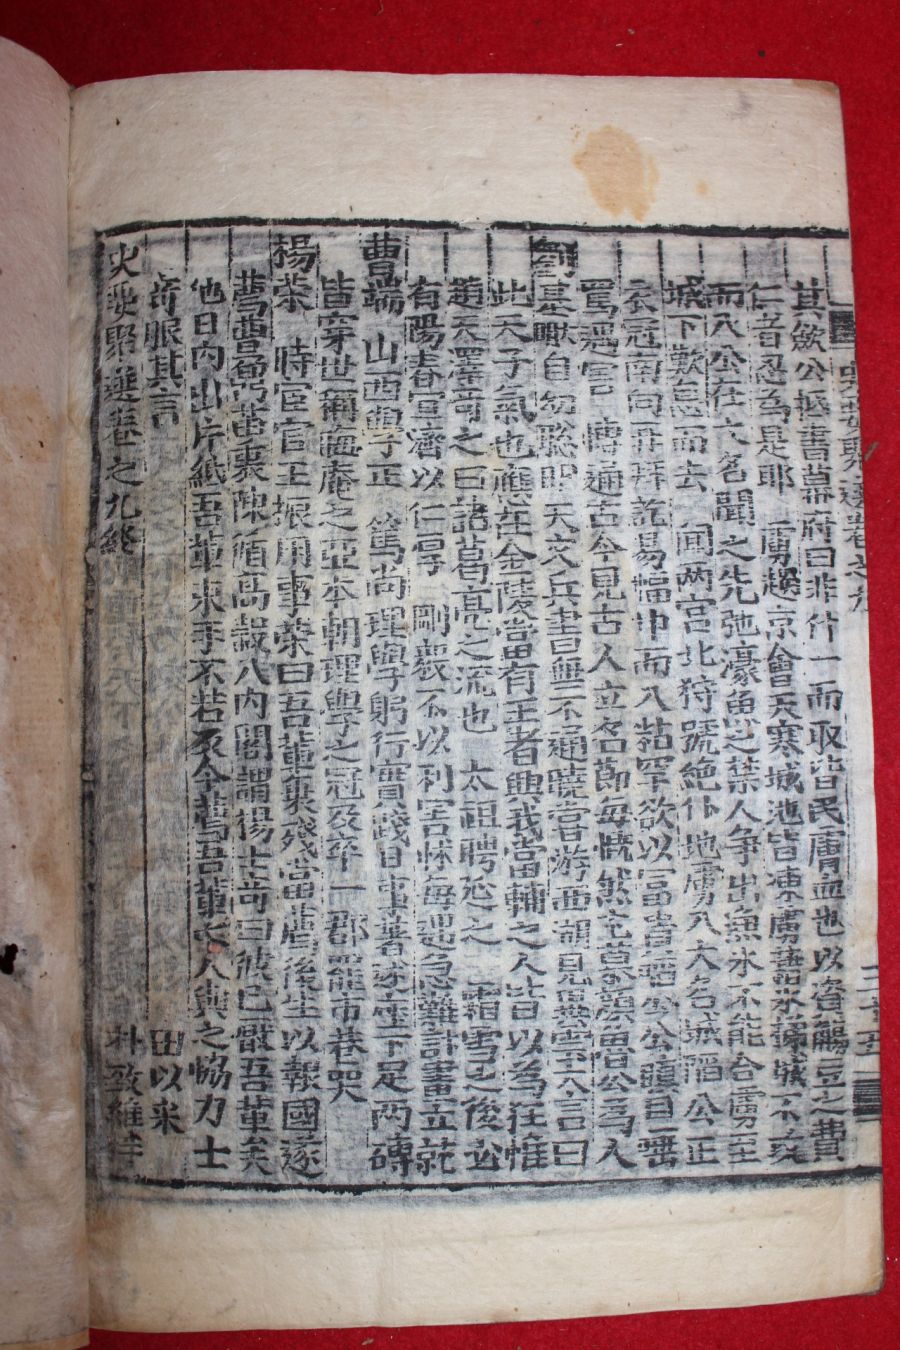 其斂公極書幕府曰非什一而取皆民膏血也以資觴豆之費
仁者忍爲是耶 虜趨京會天寒城池皆凍虜藉氷攻城不
而入公在大名聞之先弛濠魚之禁人爭出魚氷不能合虜至
城下歎息而去 聞兩宮北狩號絶仆地虜入大名城陷公正
衣冠南向再拜訖易幅巾而入粘罕欲以富貴 公公瞋目
罵遇害 博通古今見古人立名節每慨然 慕 爲人
劉基 自幼聡明天文兵書無不通曉嘗游西湖見異雲公言曰
此天子氣也應在金陵當有王者興我當輔之人皆以爲狂惟
趙天澤奇之曰諸葛亮之流也 太祖聘 之 霜雪之後必
有陽春宜濟以仁厚 剛毅不以利害怵每遇急難計畫立就
曹端 山西學正 篤尚理學躬行實踐日事著 座下足兩磚
皆穿世 晦庵之亞本朝理學之冠及卒一郡罷市巷哭
楊榮 時宦官王振用事榮曰吾輩衰殘當薦後生以報國遂
薦曹鼐 苗衷陳循高 入內閣謂楊士奇曰彼已厭吾輩矣
他日內出片紙吾輩束手不若及今薦吾輩 人與之協力士
奇服其言 田以采
史要聚選卷之九終 朴致維
史要聚選卷之九
二十五